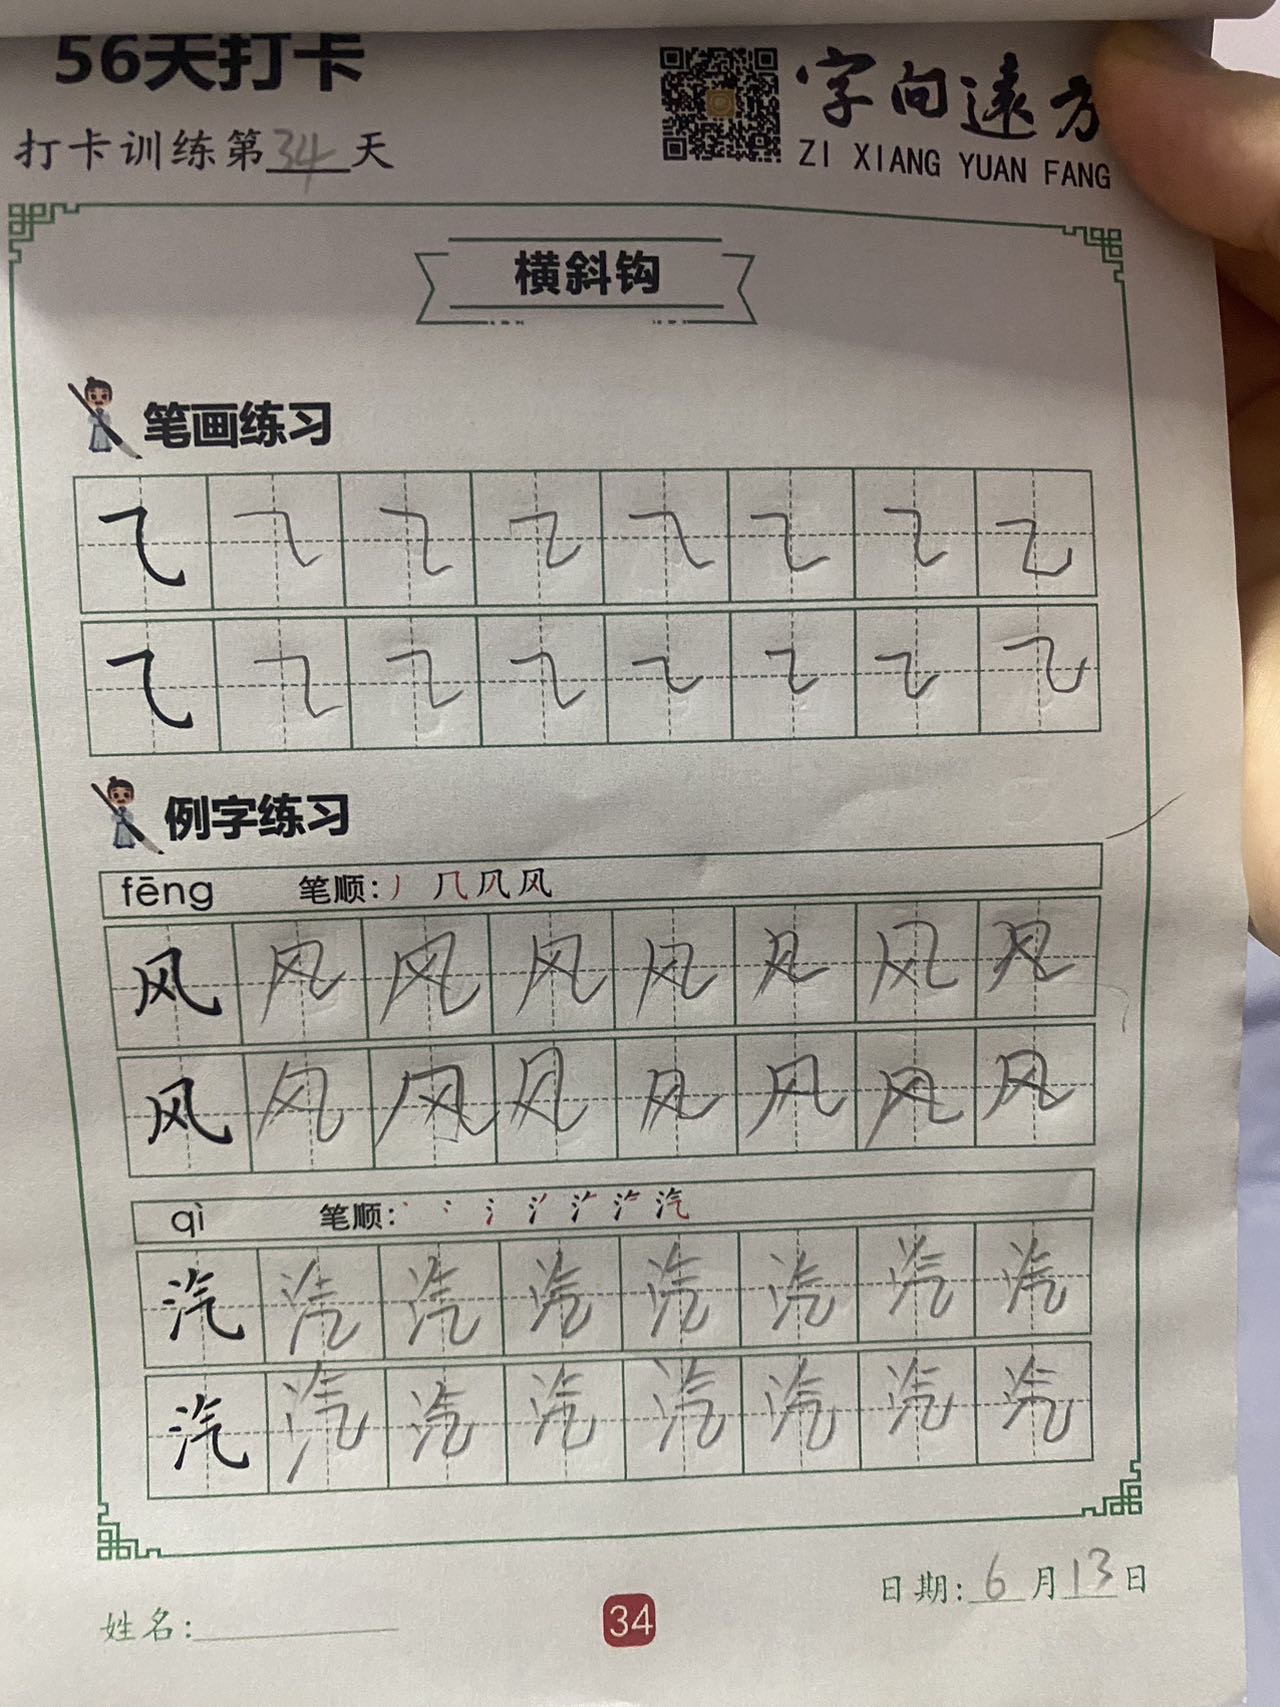 56天打卡
字向遠方
打卡训练第34天
ZI XIANG YUAN FANG
横斜钩
笔画练习
㇈ ㇈ ㇈ ㇈ ㇈ ㇈ ㇈ ㇈
㇈ ㇈ ㇈ ㇈ ㇈ ㇈ ㇈ ㇈
例字练习
fēng 笔顺: 丿 几 凤 风
风 风 风 风 风 风 风 风
风 风 风 风 风 风 风 风
qì 笔顺:
汽 汽 汽 汽 汽 汽 汽 汽
汽 汽 汽 汽 汽 汽 汽 汽
日期:6月13日
姓名:
34